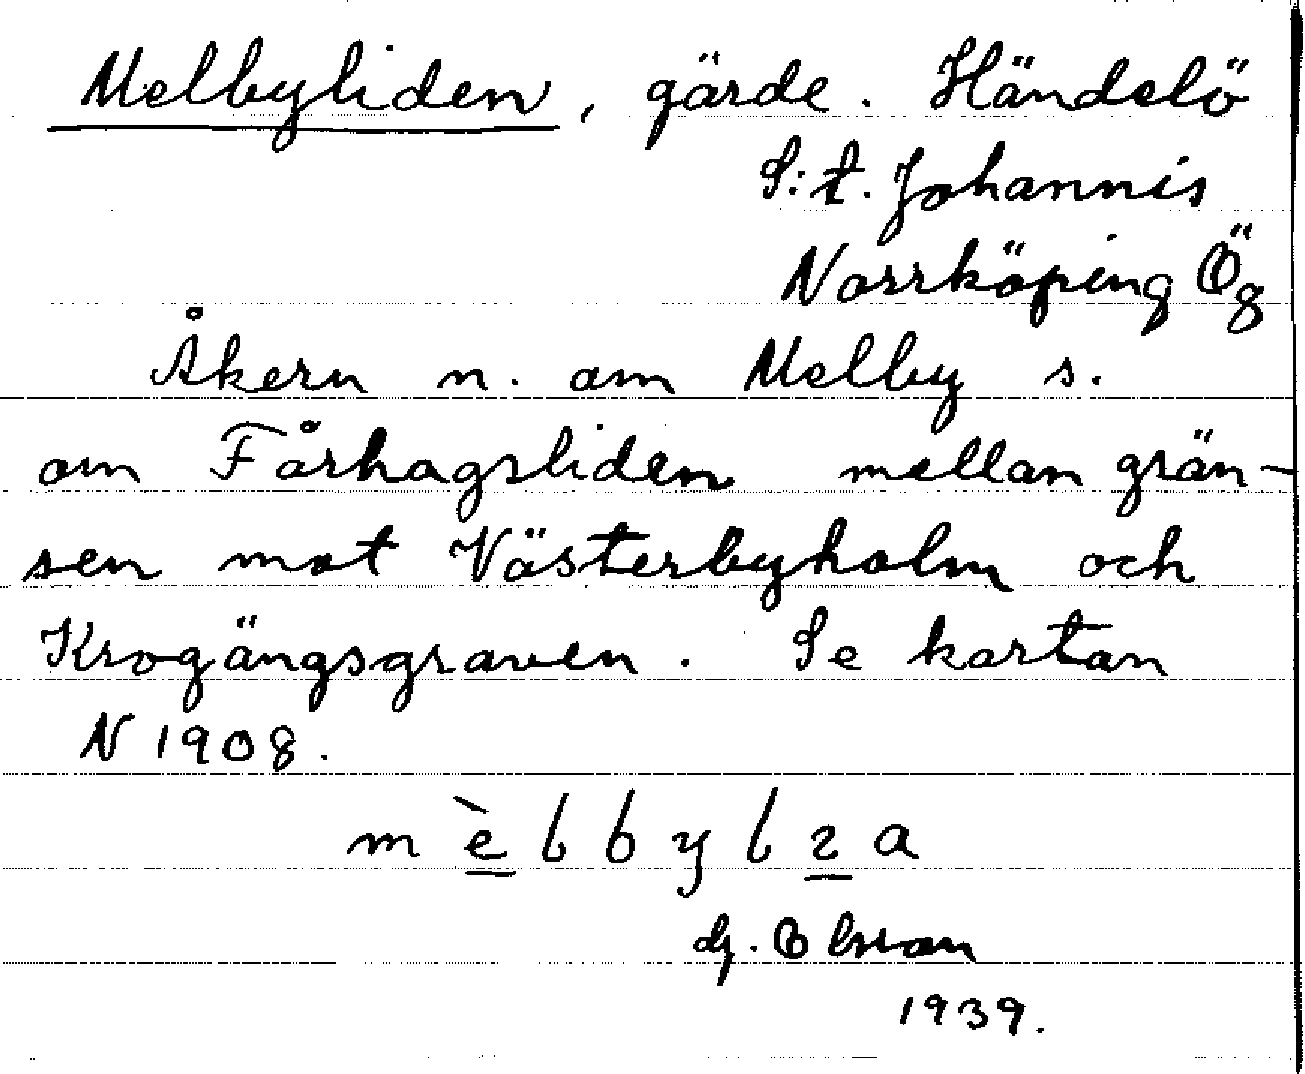 Melbyliden, gärde. Händelö
S:t. Johannis
Norrköping Ög
Åkern n. om Melby s.
om Fårhagsliden mellan grän-
sen mot Västerbyholm och
Krogängsgraven. Se kartan
N 1908.
G. Olsson
1939.